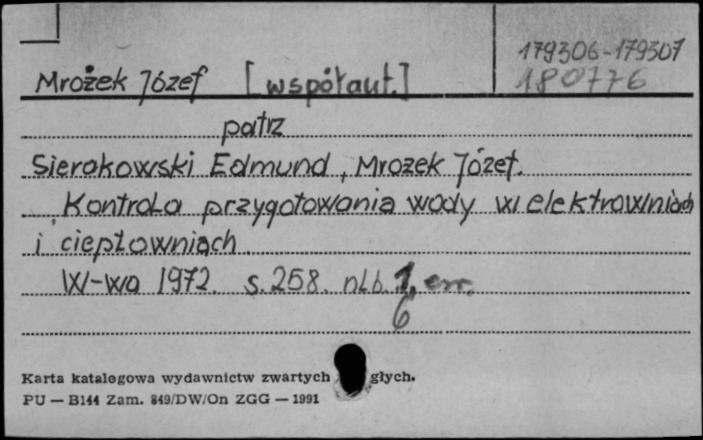 179306-179307
Mrożek Józef [współaut.] 180776
patrz
Sierakowski Edmund, Mrożek Józef.
Kontrola przygotowania wody w elektrowniach
i ciepłowniach
W-wa 1972. s. 258. nlb. 1, err.
6
Karta katalogowa wydawnictw zwartych głych.
PU — B144 Zam. 849/DW/On ZGG — 1991